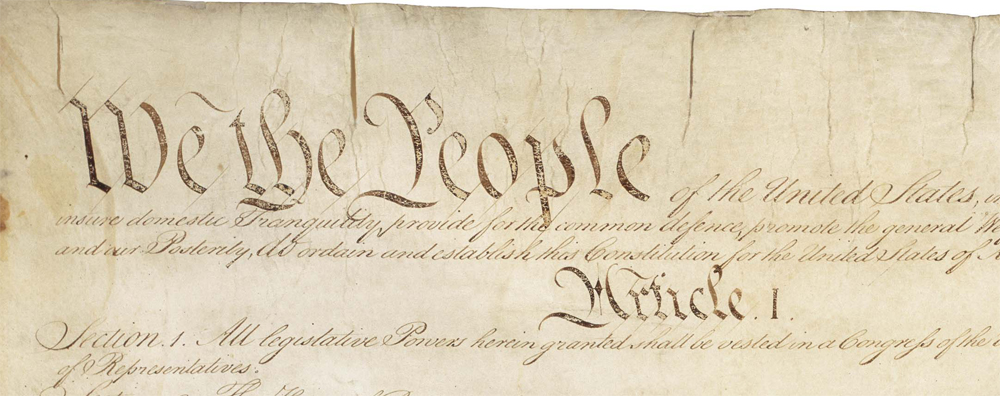 We the People of the United States,
insure domestic Tranquility, provide for the common defence, promote the general
and our Posterity, do ordain and establish this Constitution for the United States of
Article. I.
Section. 1. All legislative Powers herein granted shall be vested in a Congress of the
of Representatives.